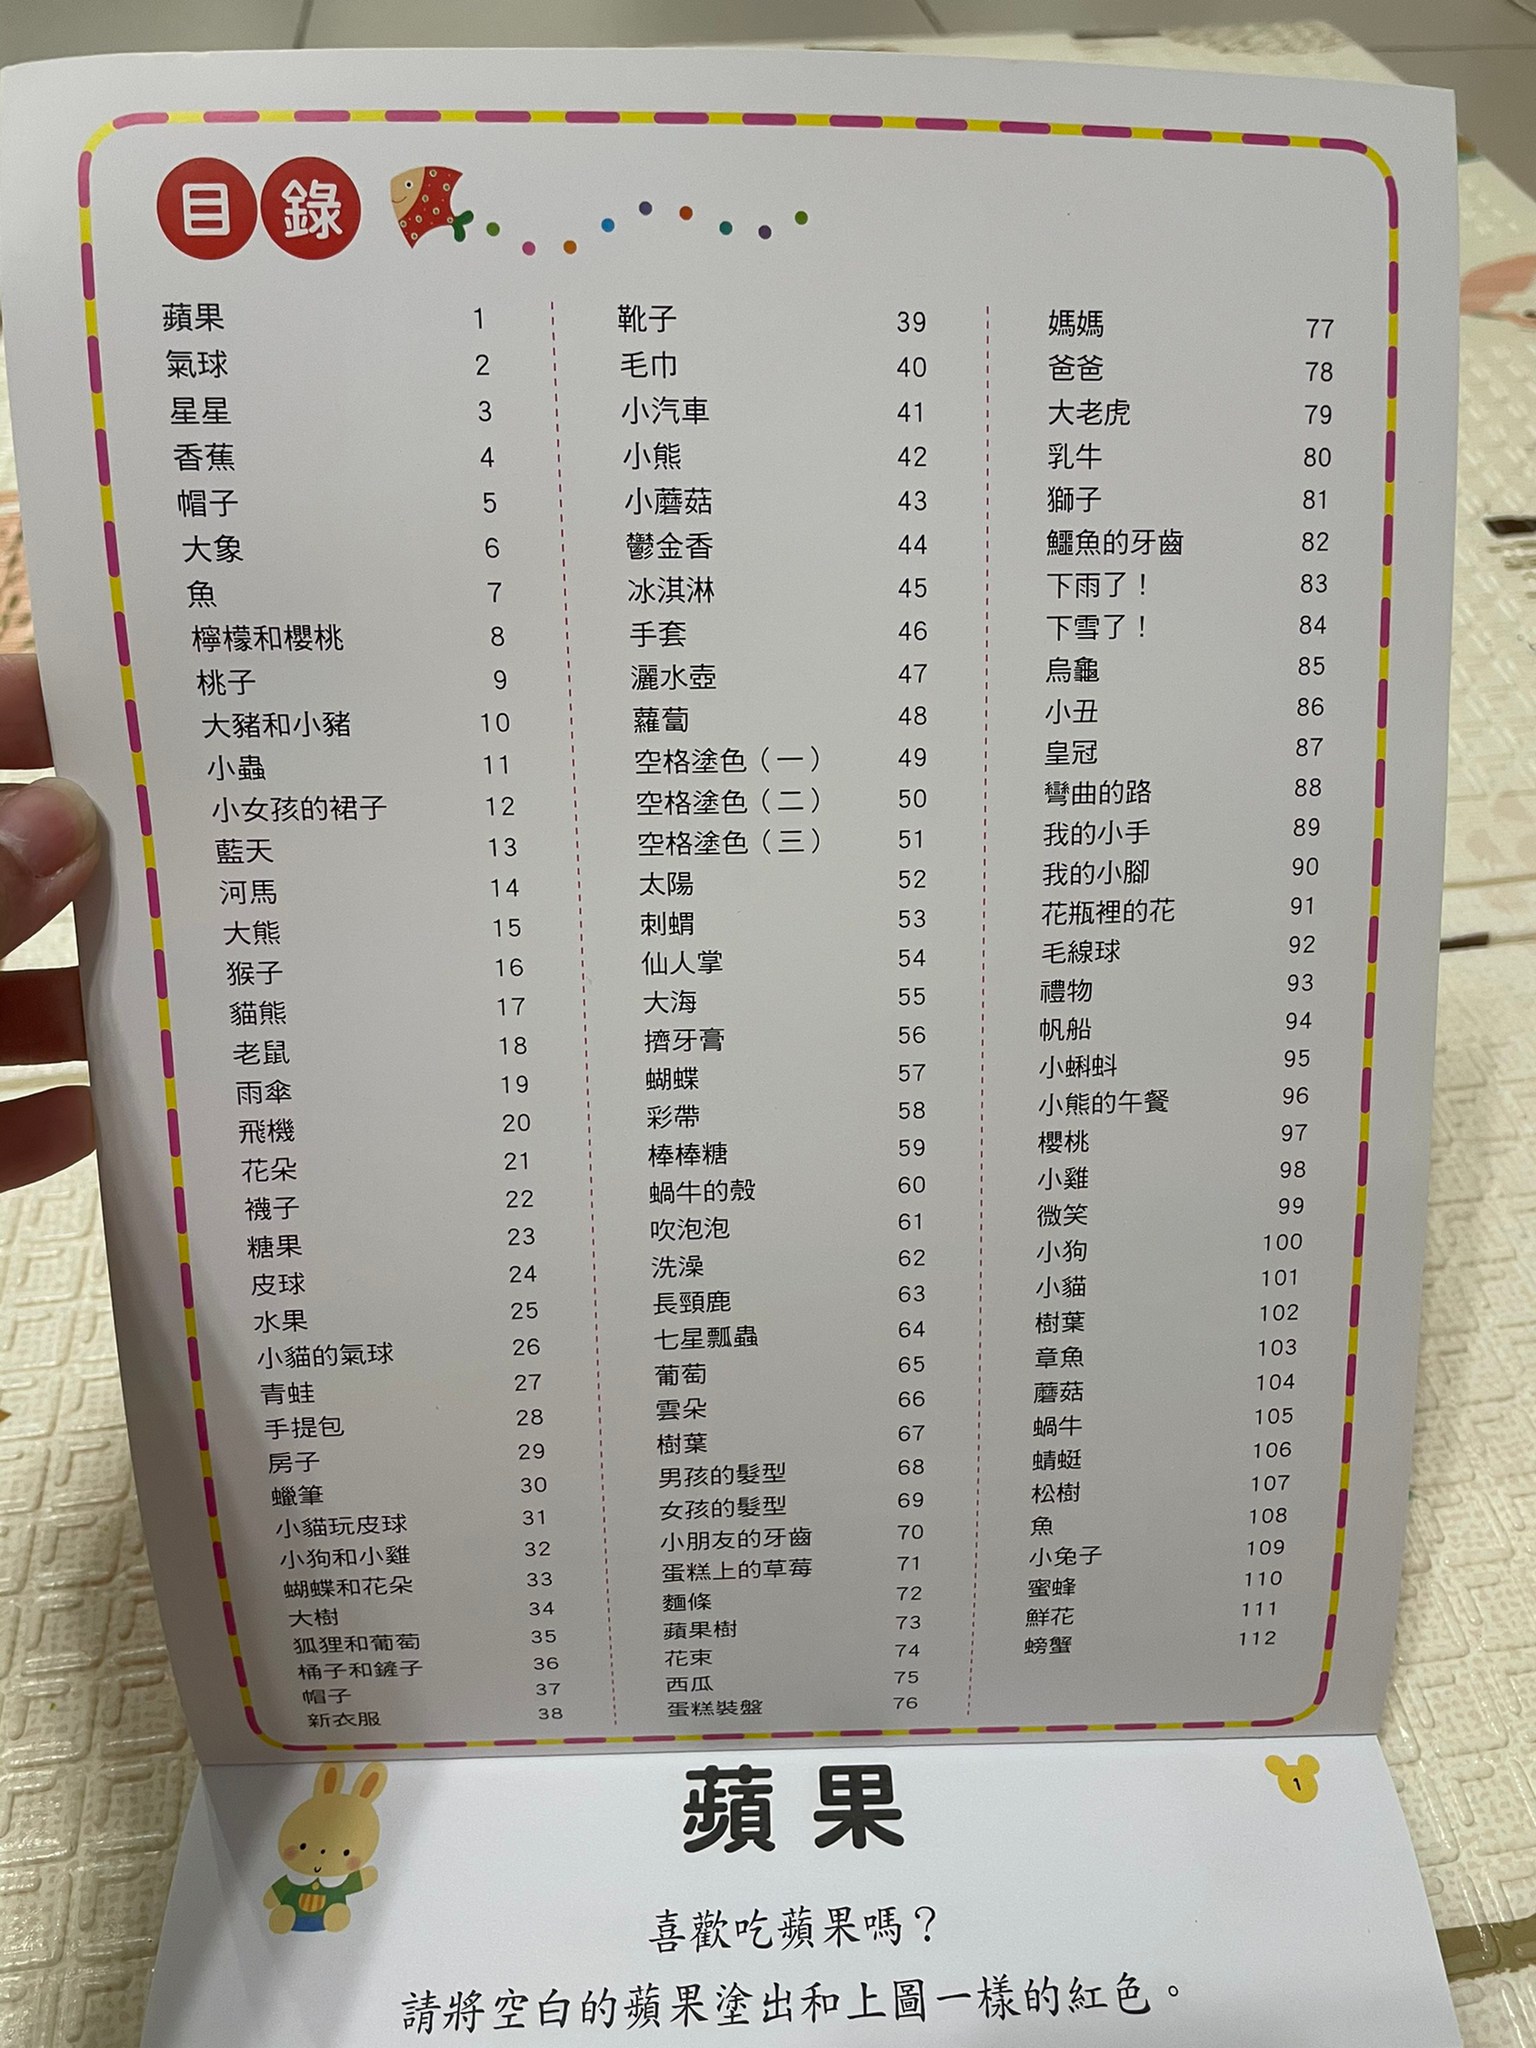 目錄
蘋果 1
氣球 2
星星 3
香蕉 4
帽子 5
大象 6
魚 7
檸檬和櫻桃 8
桃子 9
大豬和小豬 10
小蟲 11
小女孩的裙子 12
藍天 13
河馬 14
大熊 15
猴子 16
貓熊 17
老鼠 18
雨傘 19
飛機 20
花朵 21
襪子 22
糖果 23
皮球 24
水果 25
小貓的氣球 26
青蛙 27
手提包 28
房子 29
蠟筆 30
小貓玩皮球 31
小狗和小雞 32
蝴蝶和花朵 33
大樹 34
狐狸和葡萄 35
桶子和鏟子 36
帽子 37
新衣服 38
靴子 39
毛巾 40
小汽車 41
小熊 42
小蘑菇 43
鬱金香 44
冰淇淋 45
手套 46
灑水壺 47
蘿蔔 48
空格塗色（一） 49
空格塗色（二） 50
空格塗色（三） 51
太陽 52
刺蝟 53
仙人掌 54
大海 55
擠牙膏 56
蝴蝶 57
彩帶 58
棒棒糖 59
蝸牛的殼 60
吹泡泡 61
洗澡 62
長頸鹿 63
七星瓢蟲 64
葡萄 65
雲朵 66
樹葉 67
男孩的髮型 68
女孩的髮型 69
小朋友的牙齒 70
蛋糕上的草莓 71
麵條 72
蘋果樹 73
花束 74
西瓜 75
蛋糕裝盤 76
媽媽 77
爸爸 78
大老虎 79
乳牛 80
獅子 81
鱷魚的牙齒 82
下雨了！ 83
下雪了！ 84
烏龜 85
小丑 86
皇冠 87
彎曲的路 88
我的小手 89
我的小腳 90
花瓶裡的花 91
毛線球 92
禮物 93
帆船 94
小蝌蚪 95
小熊的午餐 96
櫻桃 97
小雞 98
微笑 99
小狗 100
小貓 101
樹葉 102
章魚 103
蘑菇 104
蝸牛 105
蜻蜓 106
松樹 107
魚 108
小兔子 109
蜜蜂 110
鮮花 111
螃蟹 112
蘋果
1
喜歡吃蘋果嗎？
請將空白的蘋果塗出和上圖一樣的紅色。